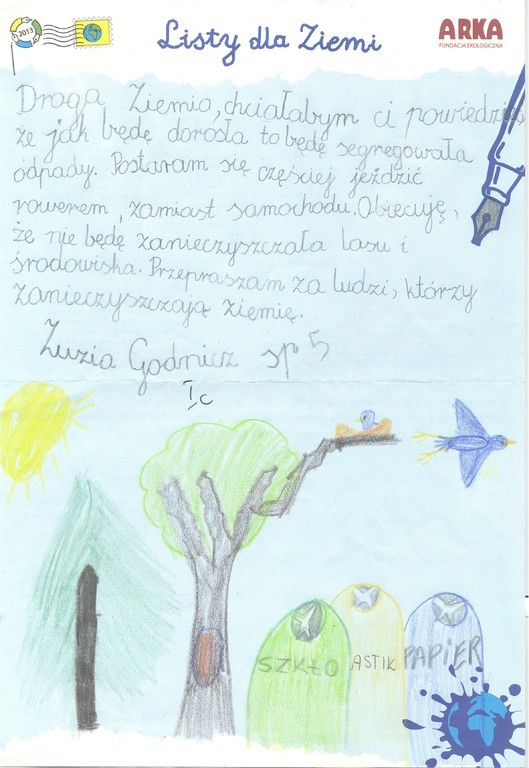 2013
Listy dla Ziemi
ARKA
FUNDACJA EKOLOGICZNA
Droga Ziemio, chciałabym ci powiedzieć
że jak będę dorosła to będę segregowała
odpady. Postaram się częściej jeździć
rowerem, zamiast samochodu. Obiecuję,
że nie będę zanieczyszczała lasu i
środowiska. Przepraszam za ludzi, którzy
zanieczyszczają ziemię.
Zuzia Godnicz sp 5
I c
SZKŁO ASTIK PAPIER